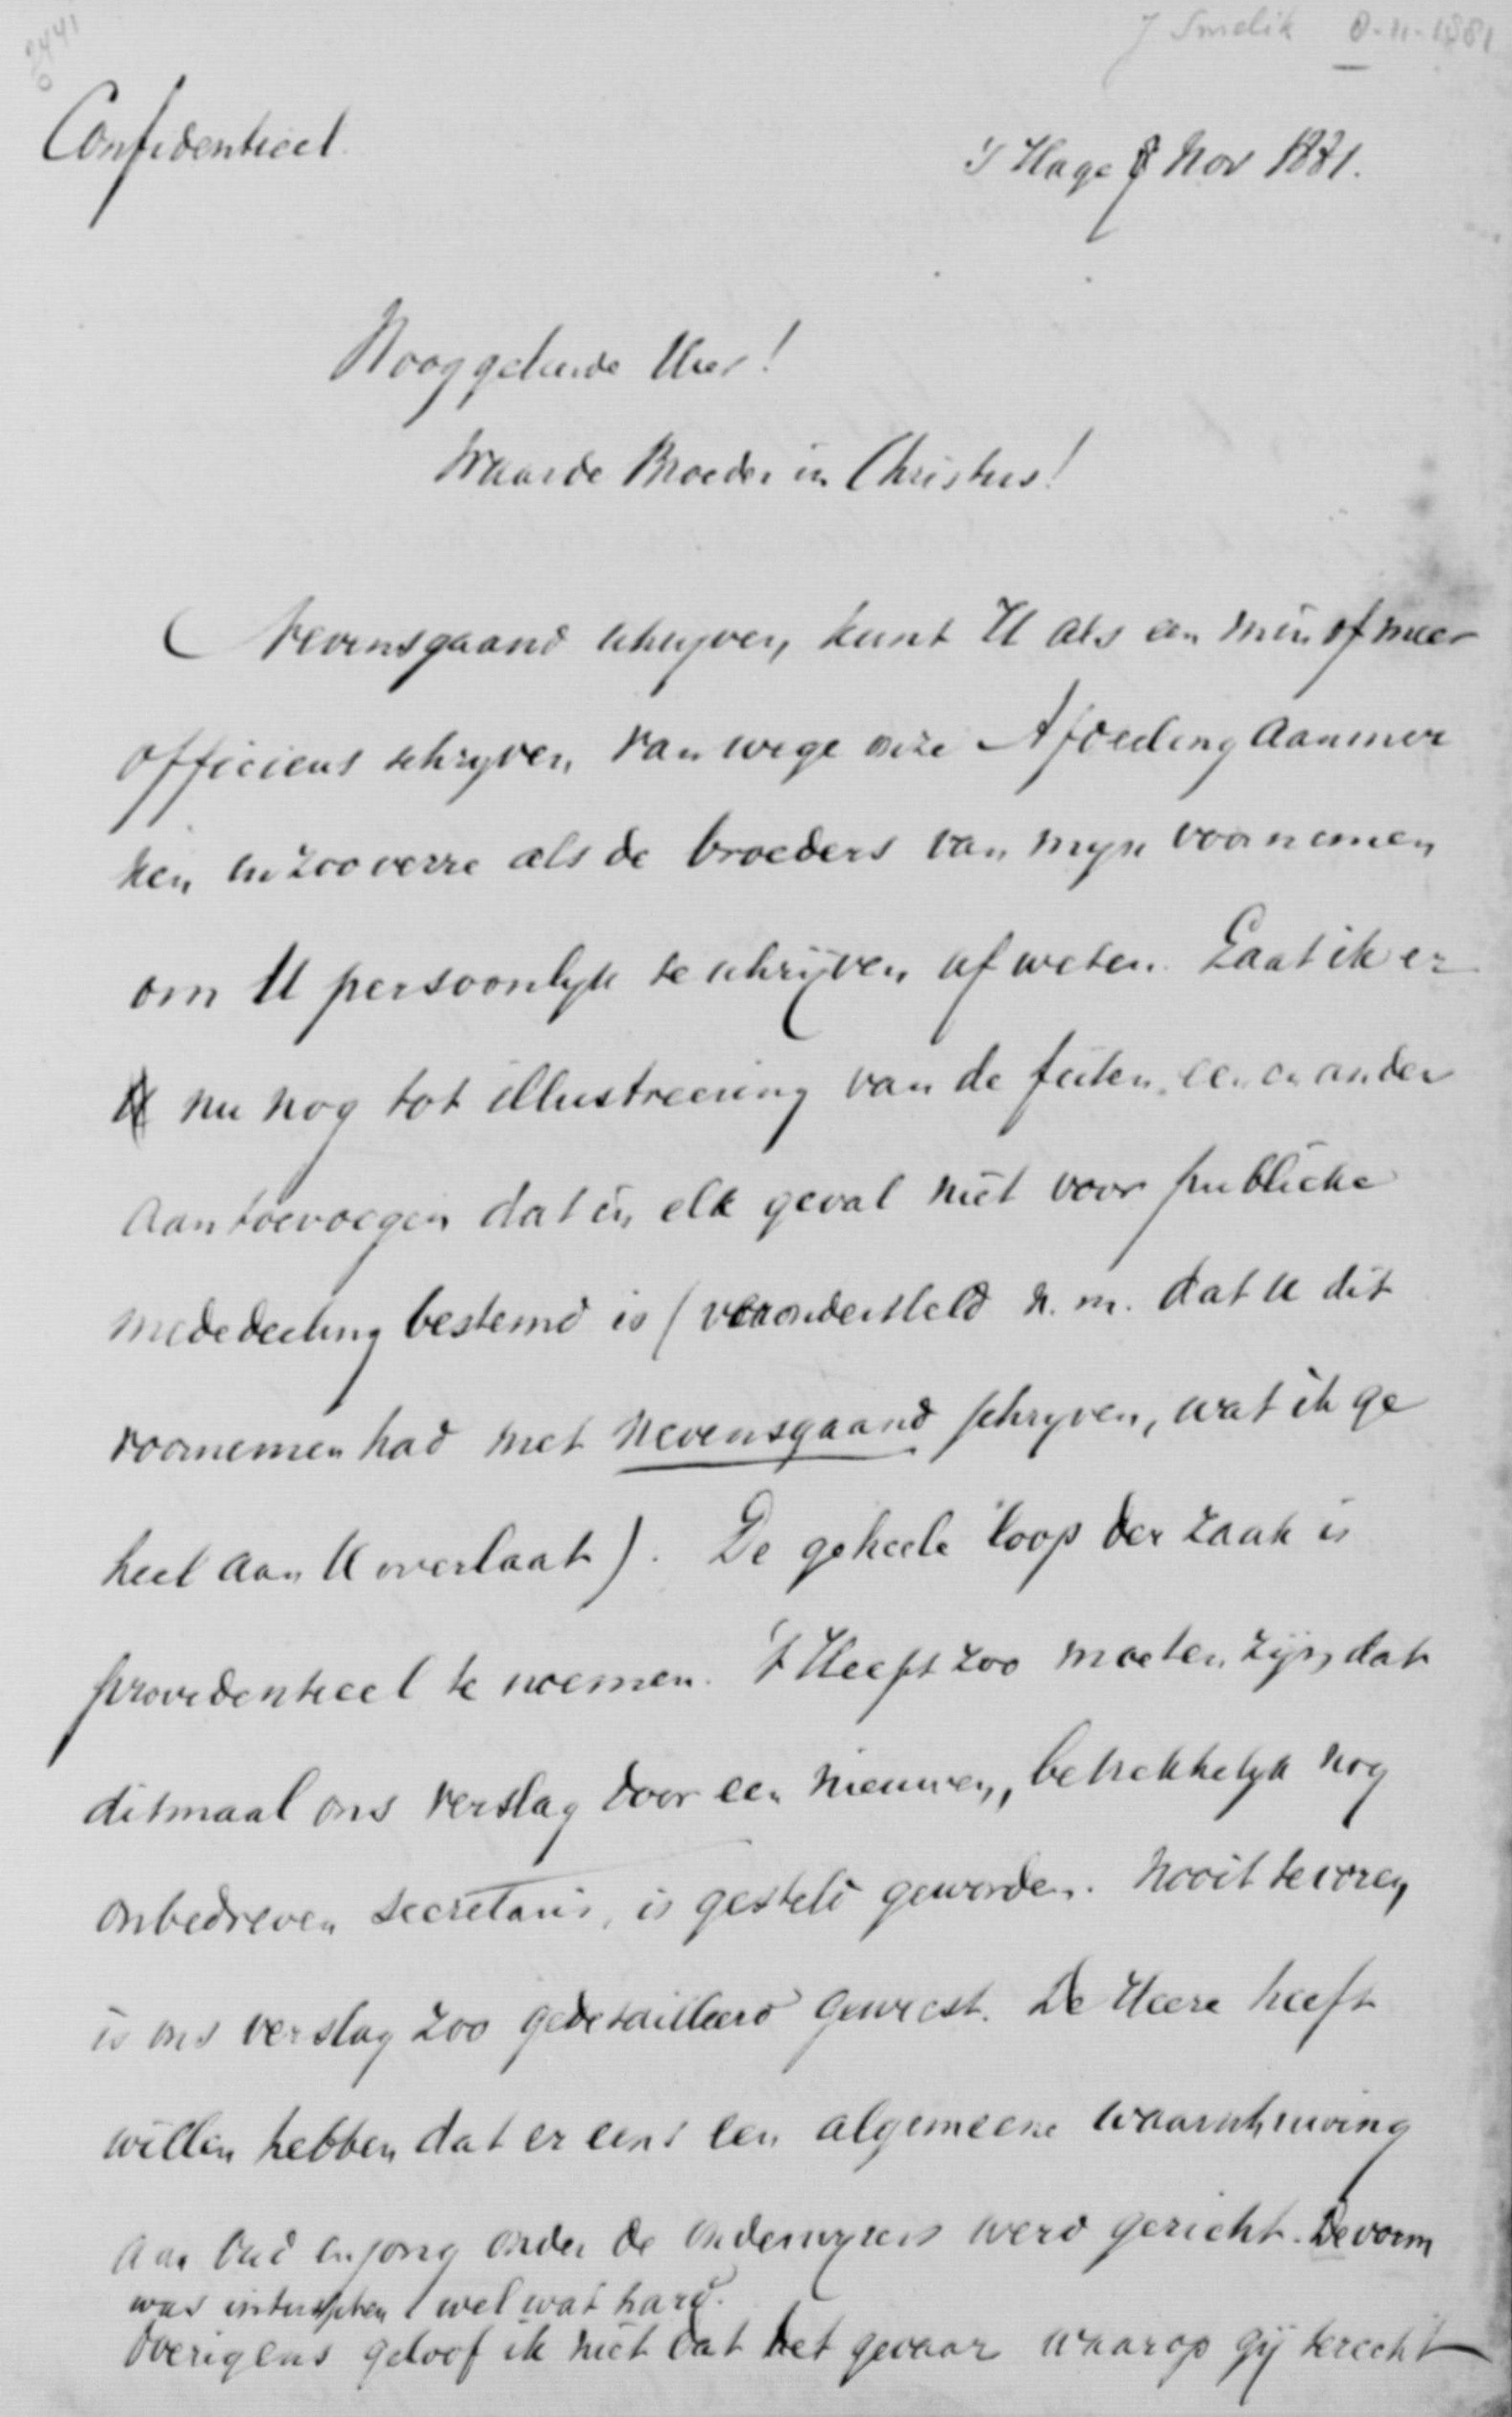 2441
J Smelik 8-11-1881
Confidentieel.
's Hage 8 Nov 1881.
Hooggeleerde Heer!
Waarde Broeder in Christus!
Nevensgaand schrijven, kunt U als een min of meer
officieus schrijven van wege onze Afdeeling aanmer
ken in zooverre als de broeders van mijn voornemen
om U persoonlijk te schrijven af weten. Laat ik er
nu nog tot illustreering van de feiten een en ander
aantoevoegen dat in elk geval niet voor publieke
mededeeling bestemd is (verondersteld n.m. dat U dit
voornemen had met nevensgaand schrijven, wat ik ge
heel aan U overlaat). De geheele loop der zaak is
providentieel te noemen. 't Heeft zoo moeten zijn, dat
ditmaal ons verslag door een nieuwen, betrekkelijk nog
onbedreven secretaris, is gesteld geworden. Nooit tevoren
is ons verslag zoo gedetailleerd geweest. De Heere heeft
willen hebben dat er eens een algemeene waarschuwing
aan oud en jong onder de onderwijzers werd gericht. De vorm
was intusschen wel wat hard.
Overigens geloof ik niet dat het gevaar waarop gij terecht